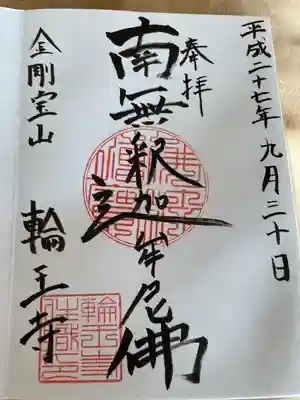 平成二十七年九月三十日
奉拝
南無釈迦牟尼佛
金剛宝山
輪王寺